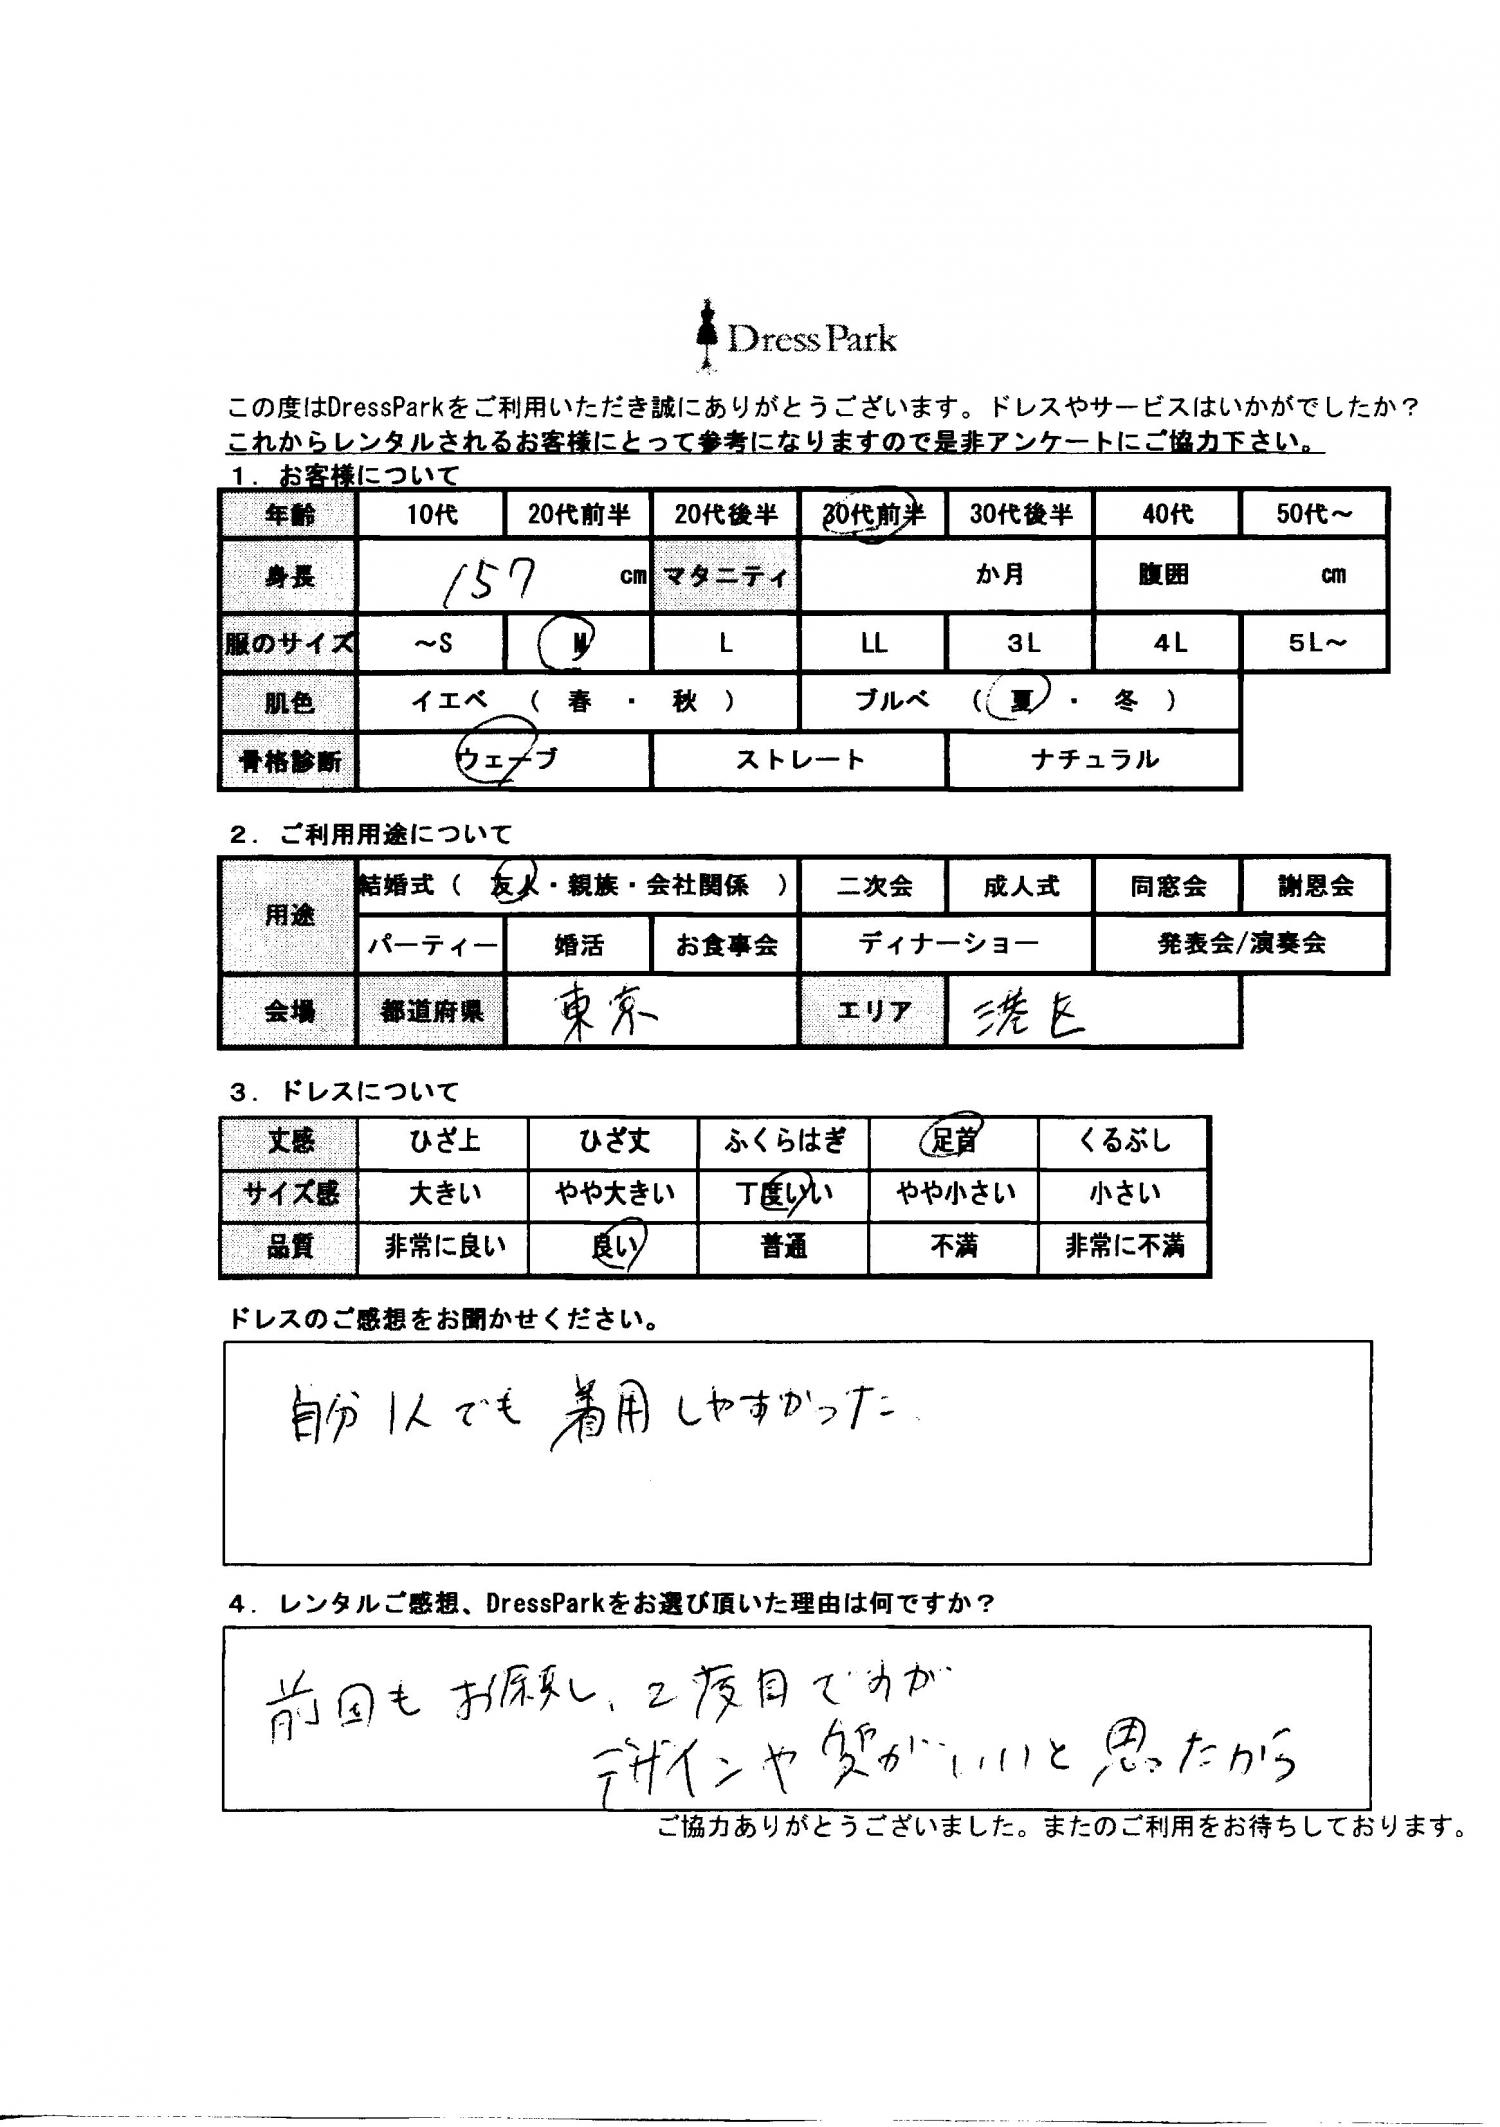 DressPark
この度はDressParkをご利用いただき誠にありがとうございます。ドレスやサービスはいかがでしたか？
これからレンタルされるお客様にとって参考になりますので是非アンケートにご協力下さい。
１．お客様について
年齢 10代 20代前半 20代後半 30代前半 30代後半 40代 50代～
身長 157 cm マタニティ か月 腹囲 cm
服のサイズ ～S M L LL 3L 4L 5L～
肌色 イエベ （ 春 ・ 秋 ） ブルベ （ 夏 ・ 冬 ）
骨格診断 ウェーブ ストレート ナチュラル
２．ご利用用途について
用途 結婚式（ 友人・親族・会社関係 ） 二次会 成人式 同窓会 謝恩会
パーティー 婚活 お食事会 ディナーショー 発表会/演奏会
会場 都道府県 東京 エリア 港区
３．ドレスについて
丈感 ひざ上 ひざ丈 ふくらはぎ 足首 くるぶし
サイズ感 大きい やや大きい 丁度いい やや小さい 小さい
品質 非常に良い 良い 普通 不満 非常に不満
ドレスのご感想をお聞かせください。
自分1人でも着用しやすかった
４．レンタルご感想、DressParkをお選び頂いた理由は何ですか？
前回もお願し、2度目ですが
デザインや質がいいと思ったから
ご協力ありがとうございました。またのご利用をお待ちしております。